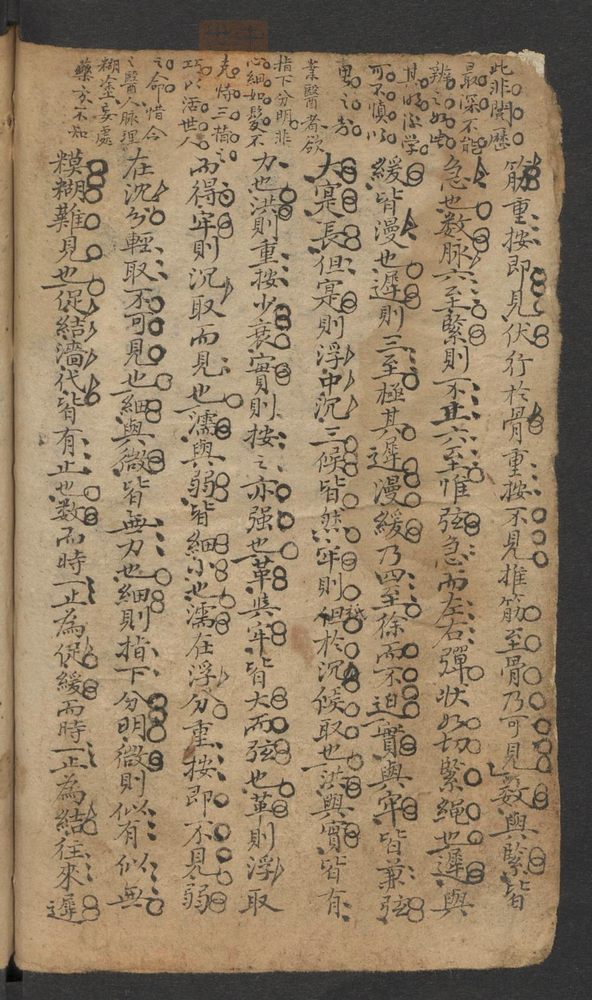 此非閱歷
最深不能
辨之如此
其明汝学
可不慎以
思之
業醫者欲
指下分明非
心細如髮不
克恃三指之
巧以活世人
之命惜今
之醫人脉理
糊塗妄處
藥方不知
筋重按即見伏行於骨重按不見推筋至骨乃可見數與緊皆
急也数脉六至緊則不止六至惟弦急而左右彈状如切緊繩也遲與
緩皆漫也遲則三至極其遲漫緩乃四至徐而不迫實與牢皆兼弦
大寔長但寔則浮中沉三候皆然牢則但於沉候取也洪與實皆有
力也洪則重按少衰實則按之亦强也革與牢皆大而弦也革則浮取
而得牢則沉取而見也濡與弱皆細小也濡在浮分重按即不見弱
在沉分輕取不可見也細與微皆無力也細則指下分明微則似有似無
糢糊難見也促結濇代皆有止也数而時一止為促緩而時一止為結往來遲